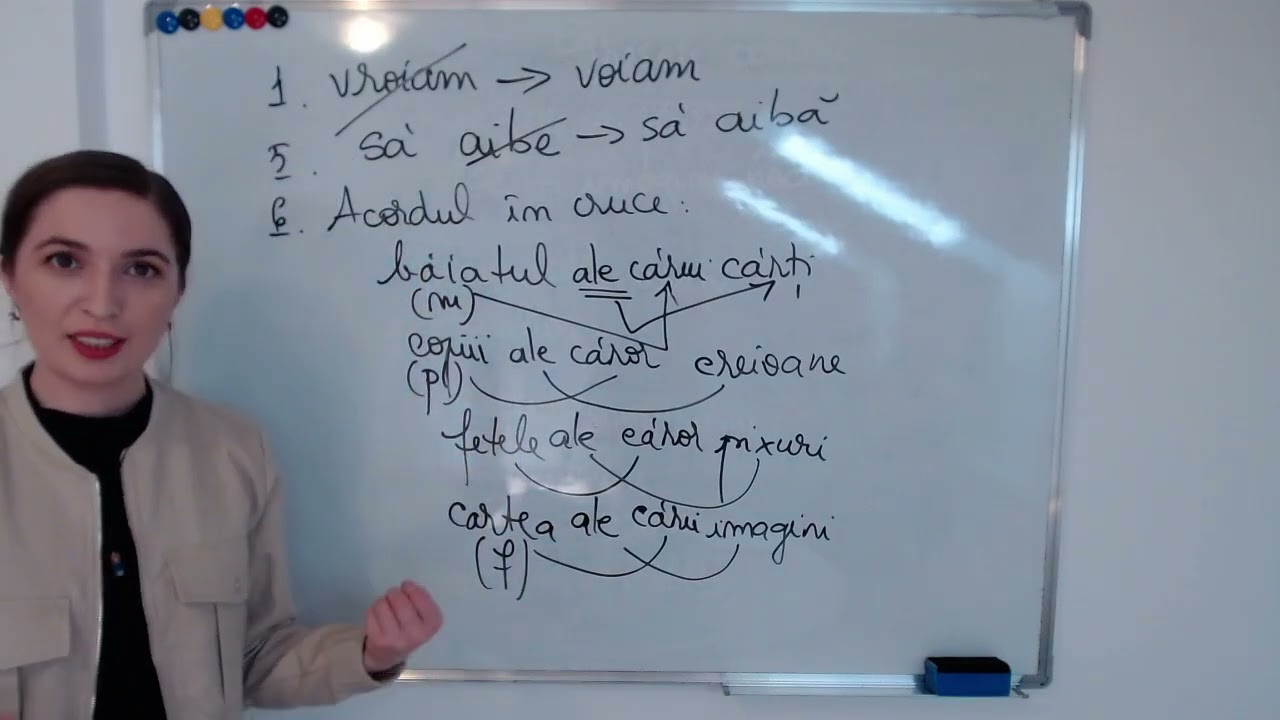 1. vroiam → voiam
5. să aibe → să aibă
6. Acordul în cruce:
băiatul ale cărui cărți
(m)
copiii ale căror creioane
(pl)
fetele ale căror pixuri
cartea ale cărei imagini
(f)